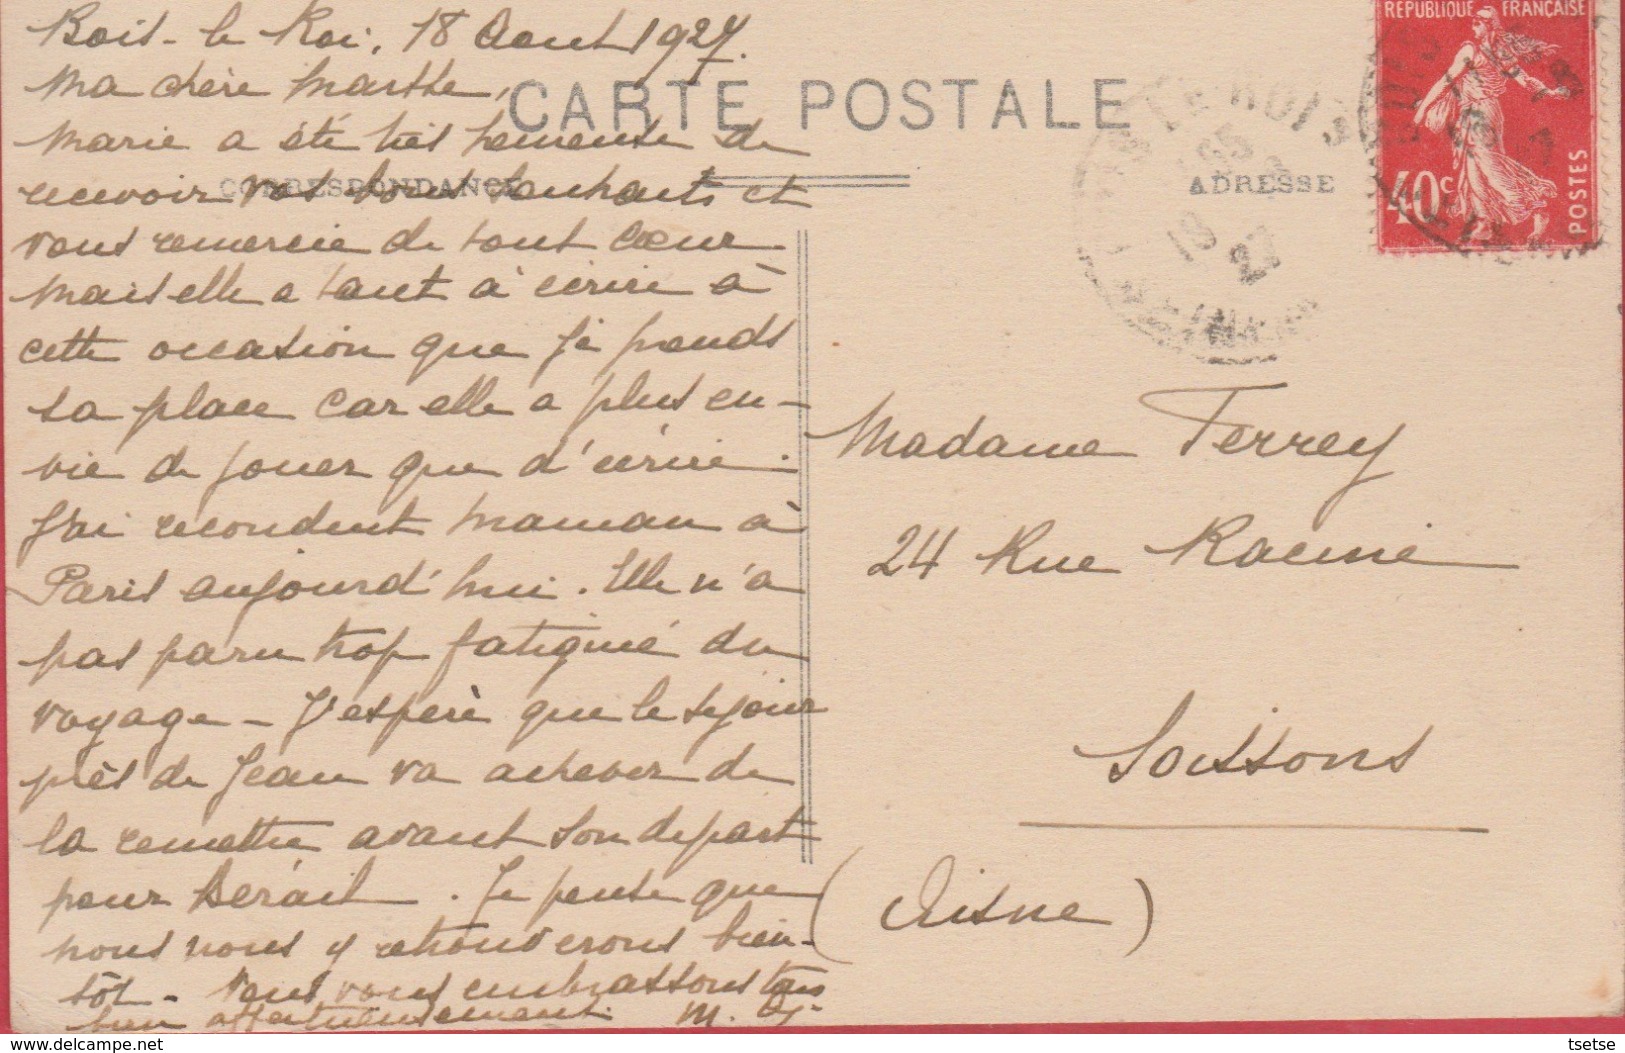 Bois-le Roi, 18 Aout 1927.
Ma chère Marthe,
CARTE POSTALE
Marie a été très heureuse de
recevoir vos bons souhaits et
CORRESPONDANCE
ADRESSE
vous remercie de tout cœur.
Mais elle a tant à écrire à
cette occasion que je prends
sa place car elle a plus en-
vie de jouer que d'écrire.
J'ai reconduit maman à
Paris aujourd'hui. Elle n'a
pas paru trop fatiguée du
voyage - J'espère que le séjour
près de Jean va achever de
la remettre avant son départ
pour . Je pense que
nous nous y retrouverons bien-
tôt - Nous vous embrassons tous
bien affectueusement. M.
REPUBLIQUE FRANÇAISE
40c
POSTES
BOIS LE ROI
18
27
Madame Ferrey
24 Rue Racine
Soissons
(Aisne)
tsetse
delcampe.net